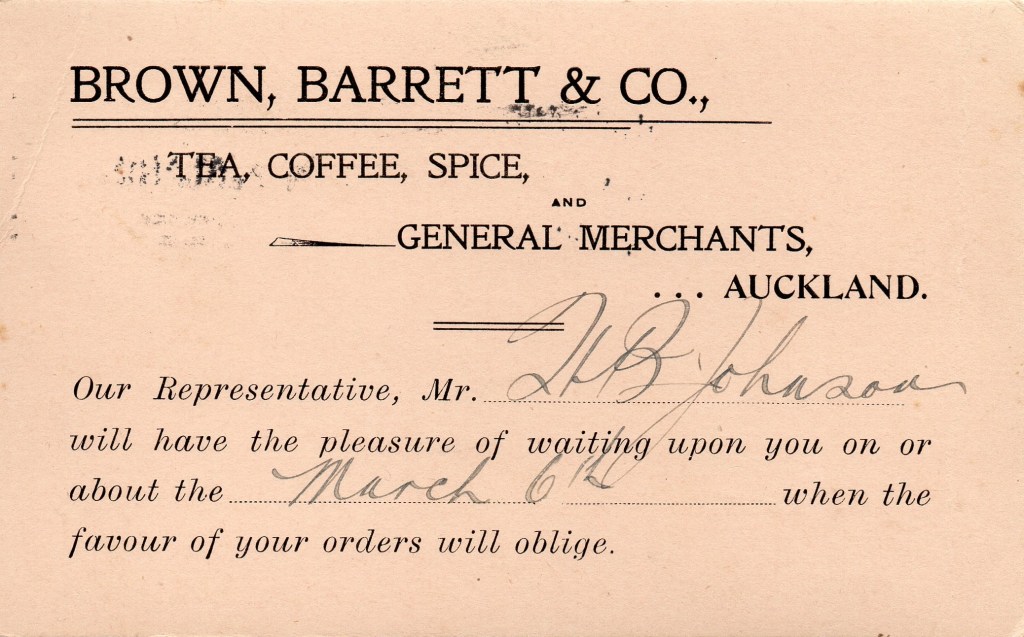 BROWN, BARRETT & CO.,
TEA, COFFEE, SPICE,
AND
GENERAL MERCHANTS,
... AUCKLAND.
Our Representative, Mr. H B Johnson
will have the pleasure of waiting upon you on or
about the March 6th when the
favour of your orders will oblige.